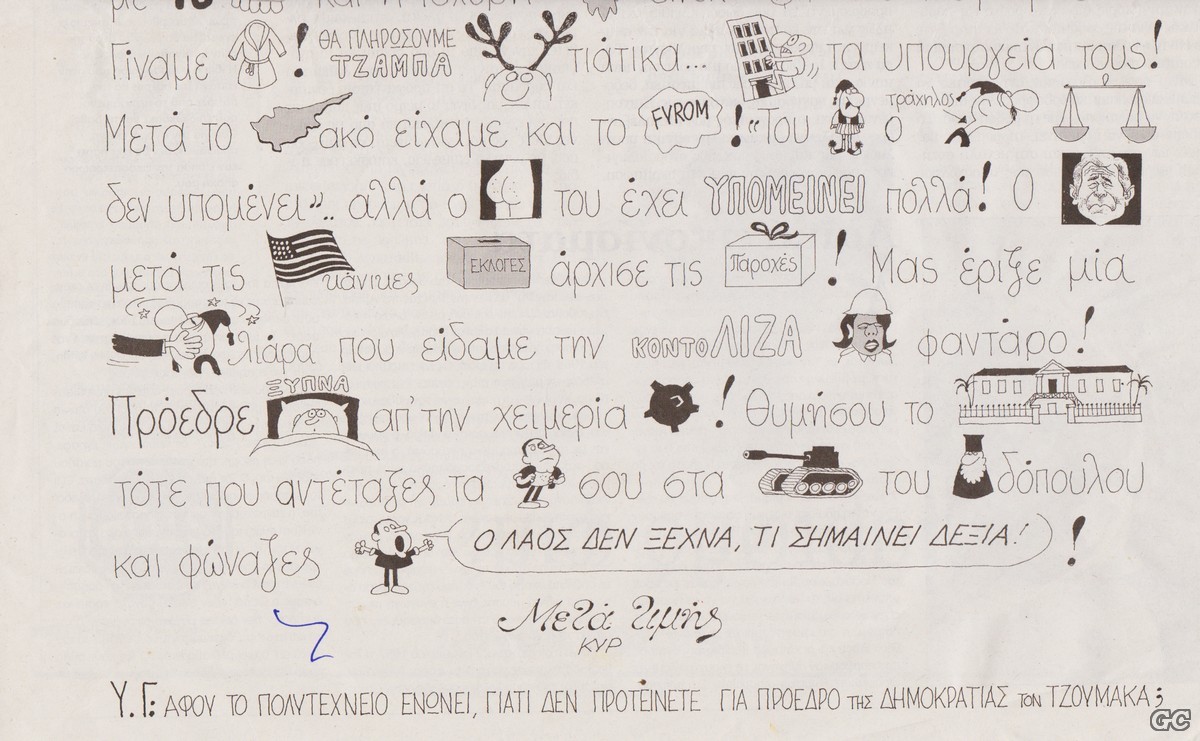 Γίναμε ! ΘΑ ΠΛΗΡΩΣΟΥΜΕ ΤΖΑΜΠΑ τιάτικα... τα υπουργεία τους!
Μετά το ακό είχαμε και το FYROM ! "Του ο τράχηλος
δεν υπομένει".. αλλά ο του έχει ΥΠΟΜΕΙΝΕΙ πολλά! Ο
μετά τις κάνικες ΕΚΛΟΓΕΣ άρχισε τις Παροχές ! Μας έριξε μία
λιάρα που είδαμε την ΚΟΝΤΟΛΙΖΑ φαντάρο!
Πρόεδρε ΞΥΠΝΑ απ' την χειμερία ! Θυμήσου το
τότε που αντέταζες τα σου στα του δόπουλου
και φώναζες Ο ΛΑΟΣ ΔΕΝ ΞΕΧΝΑ, ΤΙ ΣΗΜΑΙΝΕΙ ΔΕΞΙΑ! !
Μετά τιμής
ΚΥΡ
Υ.Γ: ΑΦΟΥ ΤΟ ΠΟΛΥΤΕΧΝΕΙΟ ΕΝΩΝΕΙ, ΓΙΑΤΙ ΔΕΝ ΠΡΟΤΕΙΝΕΤΕ ΓΙΑ ΠΡΟΕΔΡΟ της ΔΗΜΟΚΡΑΤΙΑΣ τον ΤΖΟΥΜΑΚΑ;
GC